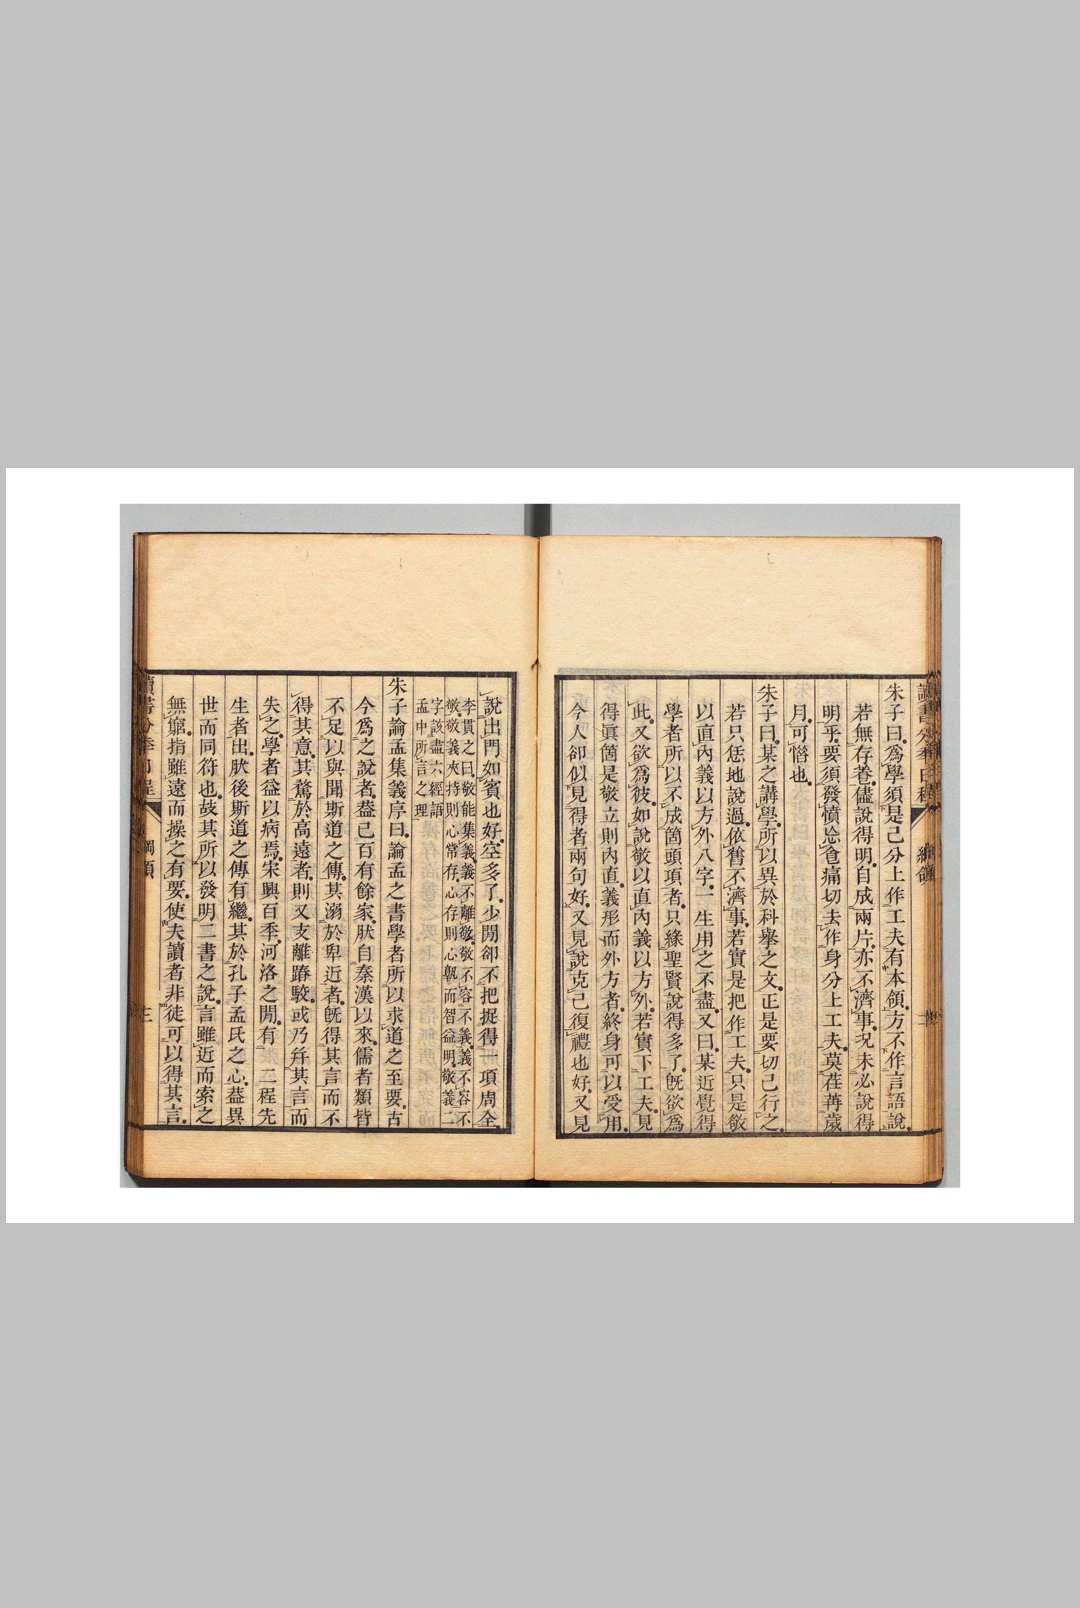 讀書分年日程 綱領
朱子曰爲學須是己分上作工夫有本領方不作言語說
若無存養儘說得明自成兩片亦不濟事况未必說得
明乎要須發憤忘食痛切去作身分上工夫莫荏苒歲
月可惜也
朱子曰某之講學所以異於科舉之文正是要切己行之
若只恁地說過依舊不濟事若實是把作工夫只是敬
以直內義以方外八字一生用之不盡又曰某近覺得
學者所以不成箇頭項者只緣聖賢說得多了旣欲爲
此又欲爲彼如說敬以直內義以方外若實下工夫見
得眞箇是敬立則內直義形而外方者終身可以受用
今人卻似見得者兩句好又見說克己復禮也好又見
說出門如賓也好空多了少閒卻不把捉得一項周全
李貫之曰敬能集義義不離敬敬不容不義義不容不
敬敬義夾持則心常存心存則心而智益明敬義二
字該盡六經語
孟中所言之理
朱子論孟集義序曰論孟之書學者所以求道之至要古
今爲之說者葢已百有餘家肰自秦漢以來儒者類皆
不足以與聞斯道之傳其溺於卑近者旣得其言而不
得其意其騖於高遠者則又支離踳駁或乃幷其言而
失之學者益以病焉宋興百季河洛之閒有二程先
生者出肰後斯道之傳有繼其於孔子孟氏之心葢異
世而同符也故其所以發明二書之說言雖近而索之
無窮指雖遠而操之有要使夫讀者非徒可以得其言
讀書分年日程 綱領